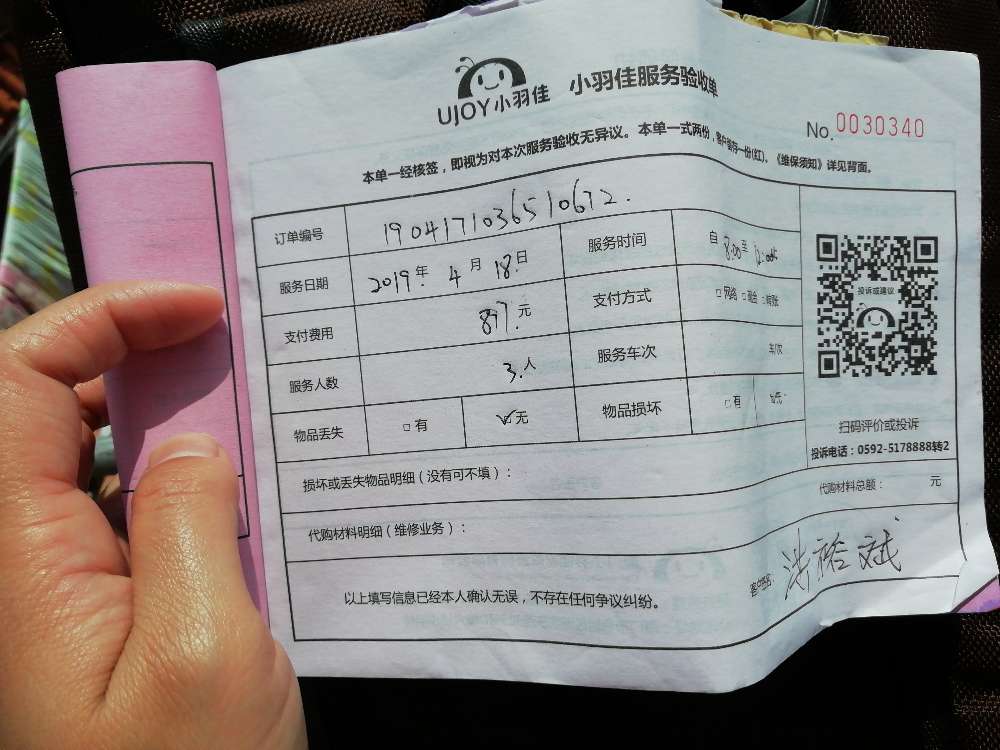 UJOY小羽佳 小羽佳服务验收单
No.0030340
本单一经核签，即视为对本次服务验收无异议。本单一式两份，客户留存一份(红)。《维保须知》详见背面。
订单编号 1904171036510672.
服务日期 2019年 4月 18日 服务时间 自 8:00 至
支付费用 877.元 支付方式 □网络 □现金 □月账
服务人数 3.人 服务车次 车/次
物品丢失 □有 ☑无 物品损坏 □有
投诉或建议
扫码评价或投诉
投诉电话：0592-5178888转2
损坏或丢失物品明细（没有可不填）：
代购材料明细（维修业务）： 代购材料总额： 元
以上填写信息已经本人确认无误，不存在任何争议纠纷。 客户签名：